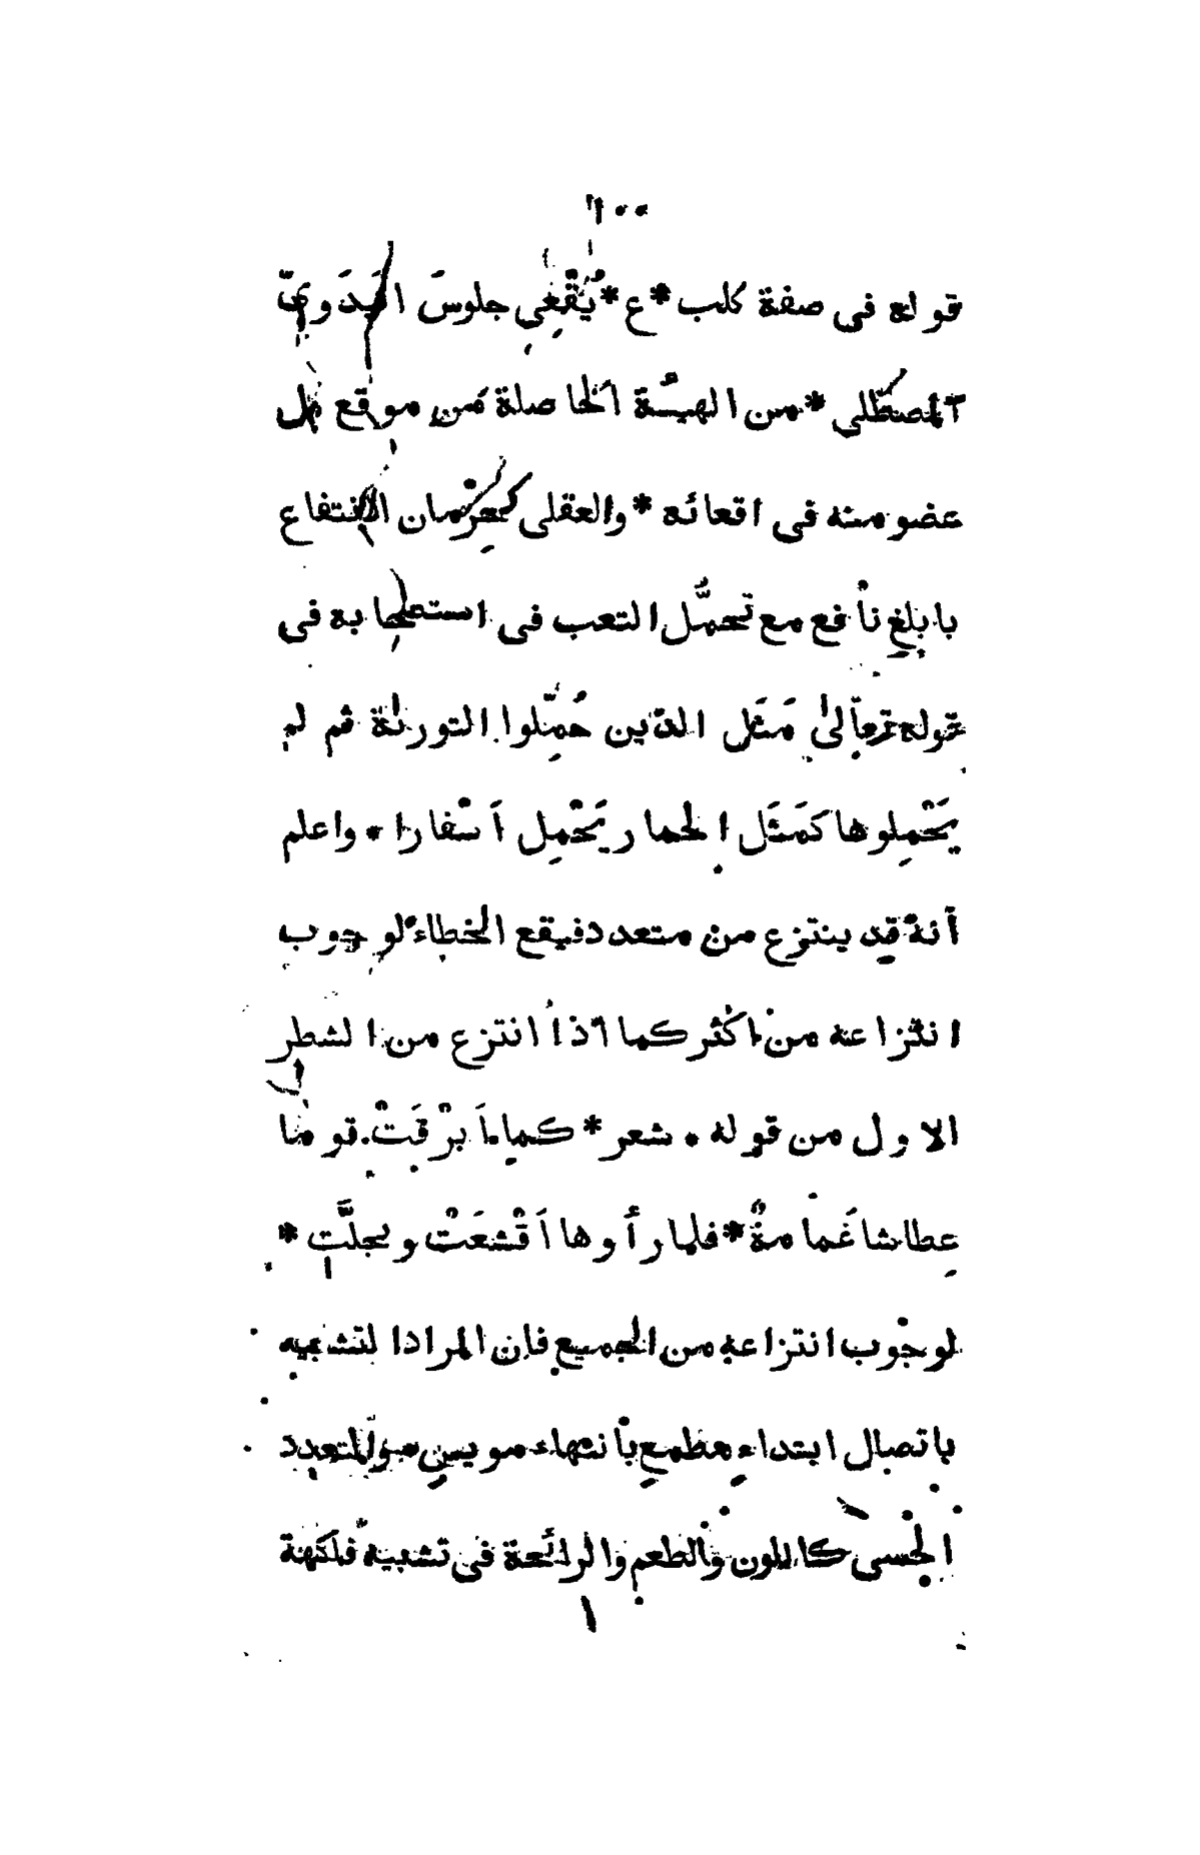 ١٠٠
قوله فى صفة كلب * ع * يُقْعِي جلوسَ البَدَوِيّ
المصطلى * من الهيئة الحاصلة من موقع كل
عضو منه فى اقعائه * والعقلى كحرْمان الانتفاع
بابلغِ نافع مع تحمُّل التعب فى استصحابه فى
قوله تعالىٰ مَثَل الذين حُمِّلوا التورٰىة ثم لم
يَحْمِلوها كَمَثَل الحمار يَحْمِل اَسْفارا * واعلم
أنه قد ينتزع من متعدد فيقع الخطاء لوجوب
انتزاعه من اكثر كما اذا انتزع من الشطر
الاول من قوله * شعر * كما اَبرْقَتْ قوما
عِطاشا غَمامةٌ * فلما رأوها اَقْشعَتْ وتجلَّتِ *
لوجوب انتزاعه من الجميع فان المراد التشبيه
باتصال ابتداءٍ مطمعٍ بانتهاء مويسٍ والمتعدد
الحسى كاللون والطعم والرائحة فى تشبيه فاكهة